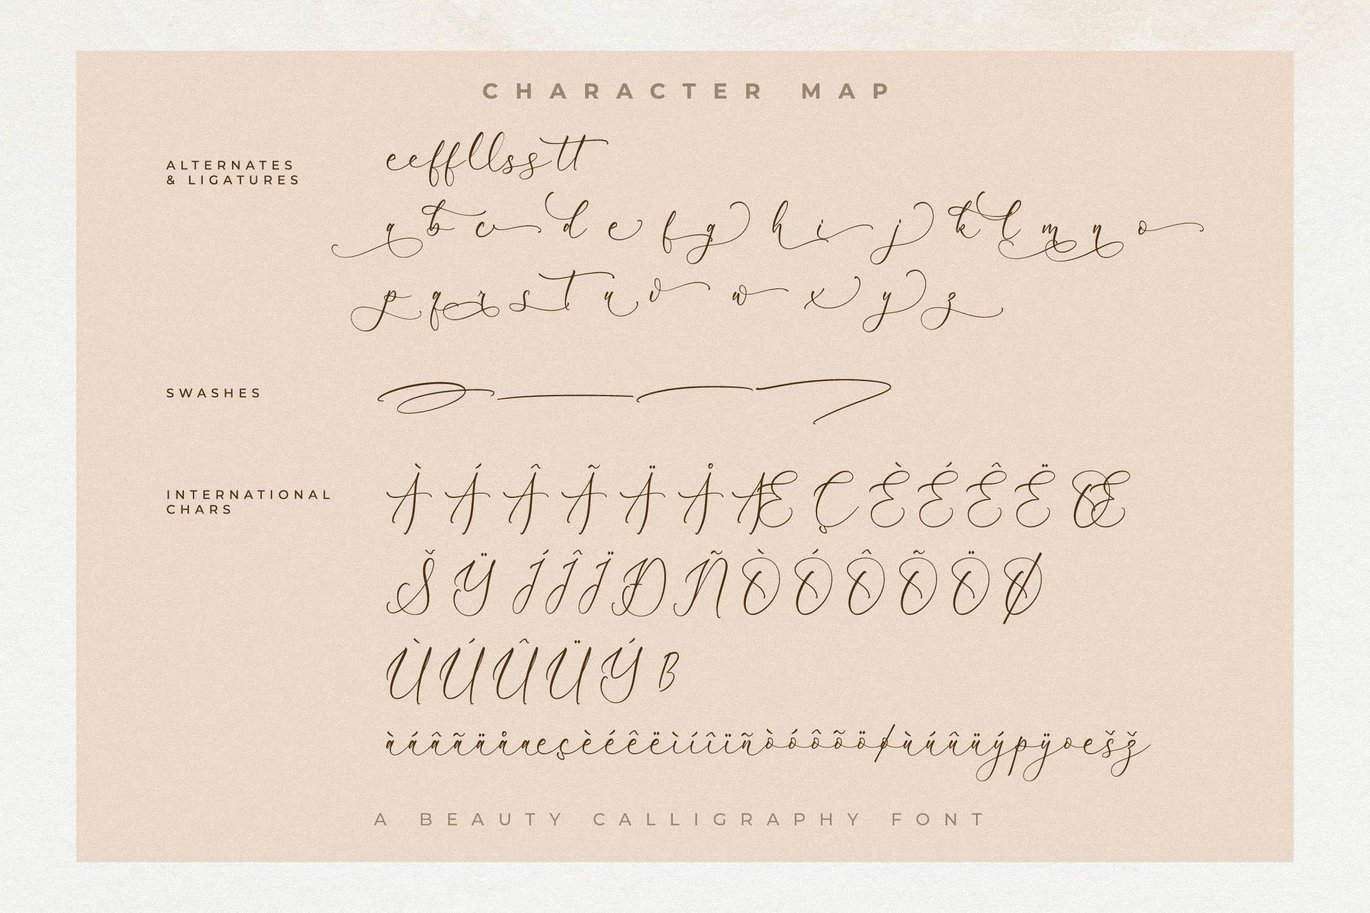 CHARACTER MAP
ALTERNATES
& LIGATURES
eeffllsstt
a b c d e f g h i j k l m n o
p q r s t u v w x y z
SWASHES
INTERNATIONAL
CHARS
À Á Â Ã Ä Å Æ Ç È É Ê Ë Œ
Š Ÿ Í Î Ï Ð Ñ Ò Ó Ô Õ Ö Ø
Ù Ú Û Ü Ý ß
àáâãäåæçèéêëìíîïñòóôõöøùúûüýþÿœšž
A BEAUTY CALLIGRAPHY FONT